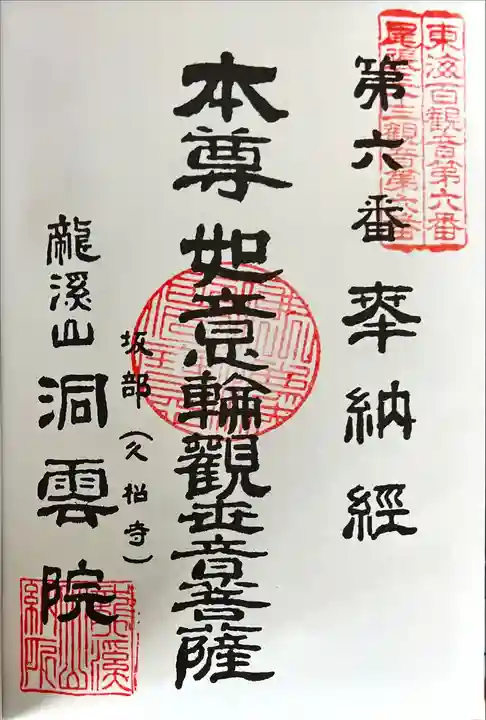 東海百觀音第六番
尾張三十三觀音第六番
第六番 奉納經
本尊 如意輪觀世音菩薩
坂部(久松寺)
龍溪山 洞雲院